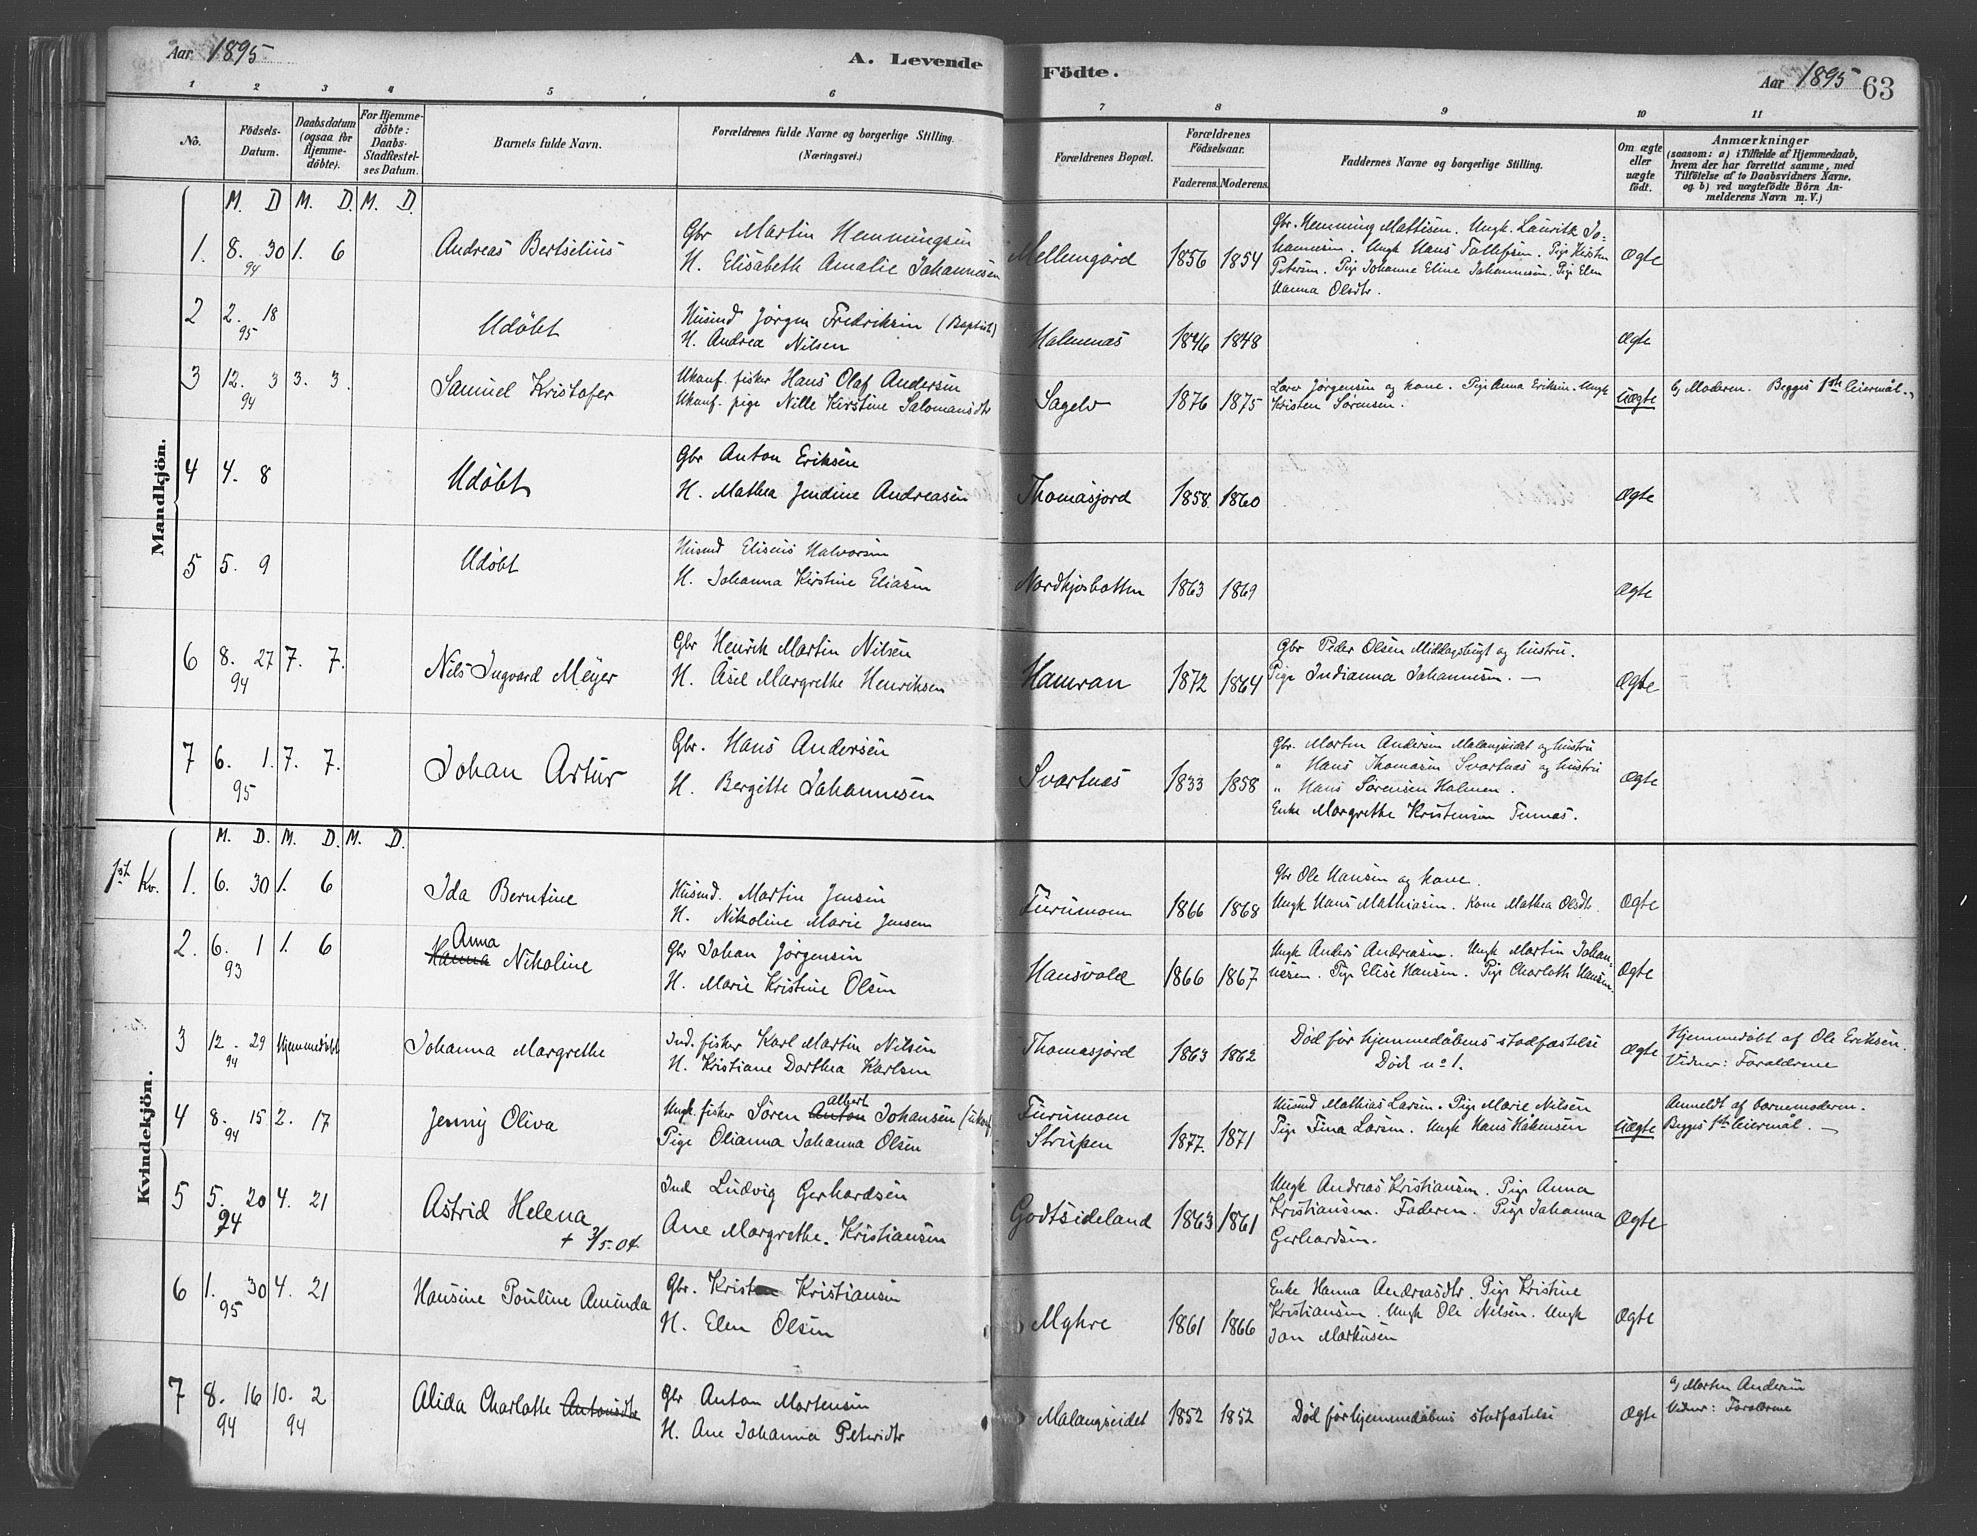 Aar 1895
A. Levende Födte.
Aar 1895 63
1 2 3 4 5 6 7 8 9 10 11
No.
Födsels-Datum.
Daabsdatum (ogsaa for Hjemme-döbte).
For Hjemme-döbte: Daabs-Stadfæstel-ses Datum.
Barnets fulde Navn.
Forældrenes fulde Navne og borgerlige Stilling. (Næringsvei.)
Forældrenes Bopæl.
Forældrenes Födselsaar.
Faderens. Moderens.
Faddernes Navne og borgerlige Stilling.
Om ægte eller uægte født.
Anmærkninger
(saasom: a) i Tilfælde af Hjemmedaab, hvem der har forrettet samme, med Tilföielse af to Daabsvidners Navne, og b) ved uægtefödte Börn An-melderens Navn m. V.)
Mandkjön.
M. D M. D. M. D.
1. 8. 30 94 1. 6 Andreas Bertselius
Gbr Martin Hemmingsen
H. Elisabeth Amalie Johannesen
Mellemgård 1856 1854
Gbr. Hemming Mattisen. Ungk. Lauritz Jo-
hannesen. Ungk Hans Tollefsen. Pige Kirsten
Petersen. Pige Johanne Eline Johannesen. Pige Elen
Hanna Olsdtr.
Ægte
2 2. 18 95 Udøbt
Husmd Jørgen Fredriksen (Baptist)
H. Andrea Nilsen
Holmenæs 1846 1848 Ægte
3 12. 3 94 3. 3. Samuel Kristofer
Ukonf. fisker Hans Olaf Andersen
Ukonf. pige Nille Kirstine Salomonsdtr
Sagelv 1876 1875
Lærer Jørgensen og kone. Pige Anna Eriksen. Ungk
Kristen Sørensen.
Uægte
b, Moderen. Begges 1ste leiermål.
4 4. 8 Udøbt
Gbr Anton Eriksen
H. Mathea Jendine Andreasen
Thomasjord 1858. 1860 Ægte
5 5. 9 Udøbt
Husmd Eliseus Halvorsen
H. Johanna Kirstine Eliasen
Nordkjosbotten 1863 1869 Ægte
6 8. 27 94 7. 7. Nils Ingvard Meyer
Gbr Henrik Martin Nilsen
H. Åsel Margrethe Henriksen
Hamran 1872 1864
Gbr Peder Olsen Middagsbugt og hustru.
Pige Indianna Johannesen. —
Ægte
7 6. 1. 95 7. 7. Johan Artur
Gbr. Hans Andersen
H. Bergitte Johannesen
Svartnæs 1833 1858
Gbr. Morten Andersen Malangseidet og hustru
" Hans Thomasen Svartnæs og hustru
" Hans Sørensen Holmen.
Enke Margrethe Kristensen Tennæs.
Ægte
Kvindekjön.
M. D. M. D. M D.
1st Kv. 1. 6. 30 1. 6 Ida Berntine
Husmd. Martin Jensen
H. Nikoline Marie Jensen
Furumoen 1866 1868
Gbr Ole Hansen og kone.
Ungk Hans Mathiasen. Kone Mathea Olsdtr.
Ægte
2. 6. 1 93 1. 6 Anna
Hanna Nikoline
Gbr Johan Jørgensen
H. Marie Kristine Olsen
Hansvold 1866 1867
Ungk Anders Andreasen. Ungk Martin Johan-
nesen. Pige Elise Hansen. Pige Charloth Hansen.
Ægte
3 12. 29 94 Hjemmedøbt Johanna Margrethe
Ind. fisker Karl Martin Nilsen
H. Kristiane Dorthea Karlsen
Thomasjord 1863 1862
Død før hjemmedåbens stadfæstelse
Døde no 1.
Ægte
Hjemmedøbt af Ole Eriksen.
Vidner: Forældrene
4 8. 15 94 2. 17 Jenny Oliva
Ungk. fisker Søren Anton Albert Johansen (ukonf)
Pige Olianna Johanna Olsen
Furumoen
Strupen 1877. 1871
Husmd Mathias Larsen. Pige Marie Nilsen
Pige Fina Larsen. Ungk Hans Håkensen
Uægte
Anmeldt af barnemoderen.
Begges 1ste leiermål. —
5 5. 20 94 4. 21 Astrid Helena
+ 3/5-04.
Ind Ludvig Gerhardsen
Ane Margrethe. Kristiansen
Godtsideland 1863 1861
Ungk Andreas Kristiansen. Pige Anna
Kristiansen. Faderen. Pige Johanna
Gerhardsen.
Ægte
6 1. 30 95 4. 21 Hansine Pouline Aminda
Gbr. Kristen Kristiansen
H. Elen Olsen
Myhre 1861 1866
Enke Hanna Andreasdtr. Pige Kristine
Kristiansen. Ungk Ole Nilsen. Ungk
Jon Markusen
Ægte
7 8. 16 94 10. 2 94 Alida Charlotte Antonsdtr
Gbr Anton Mortensen
H. Ane Johanna Petersdtr
Malangseidet 1852 1852
Død før hjemmedåbens stadfæstelse
Ægte
a, Morten Andersen
Vidner: Forældrene